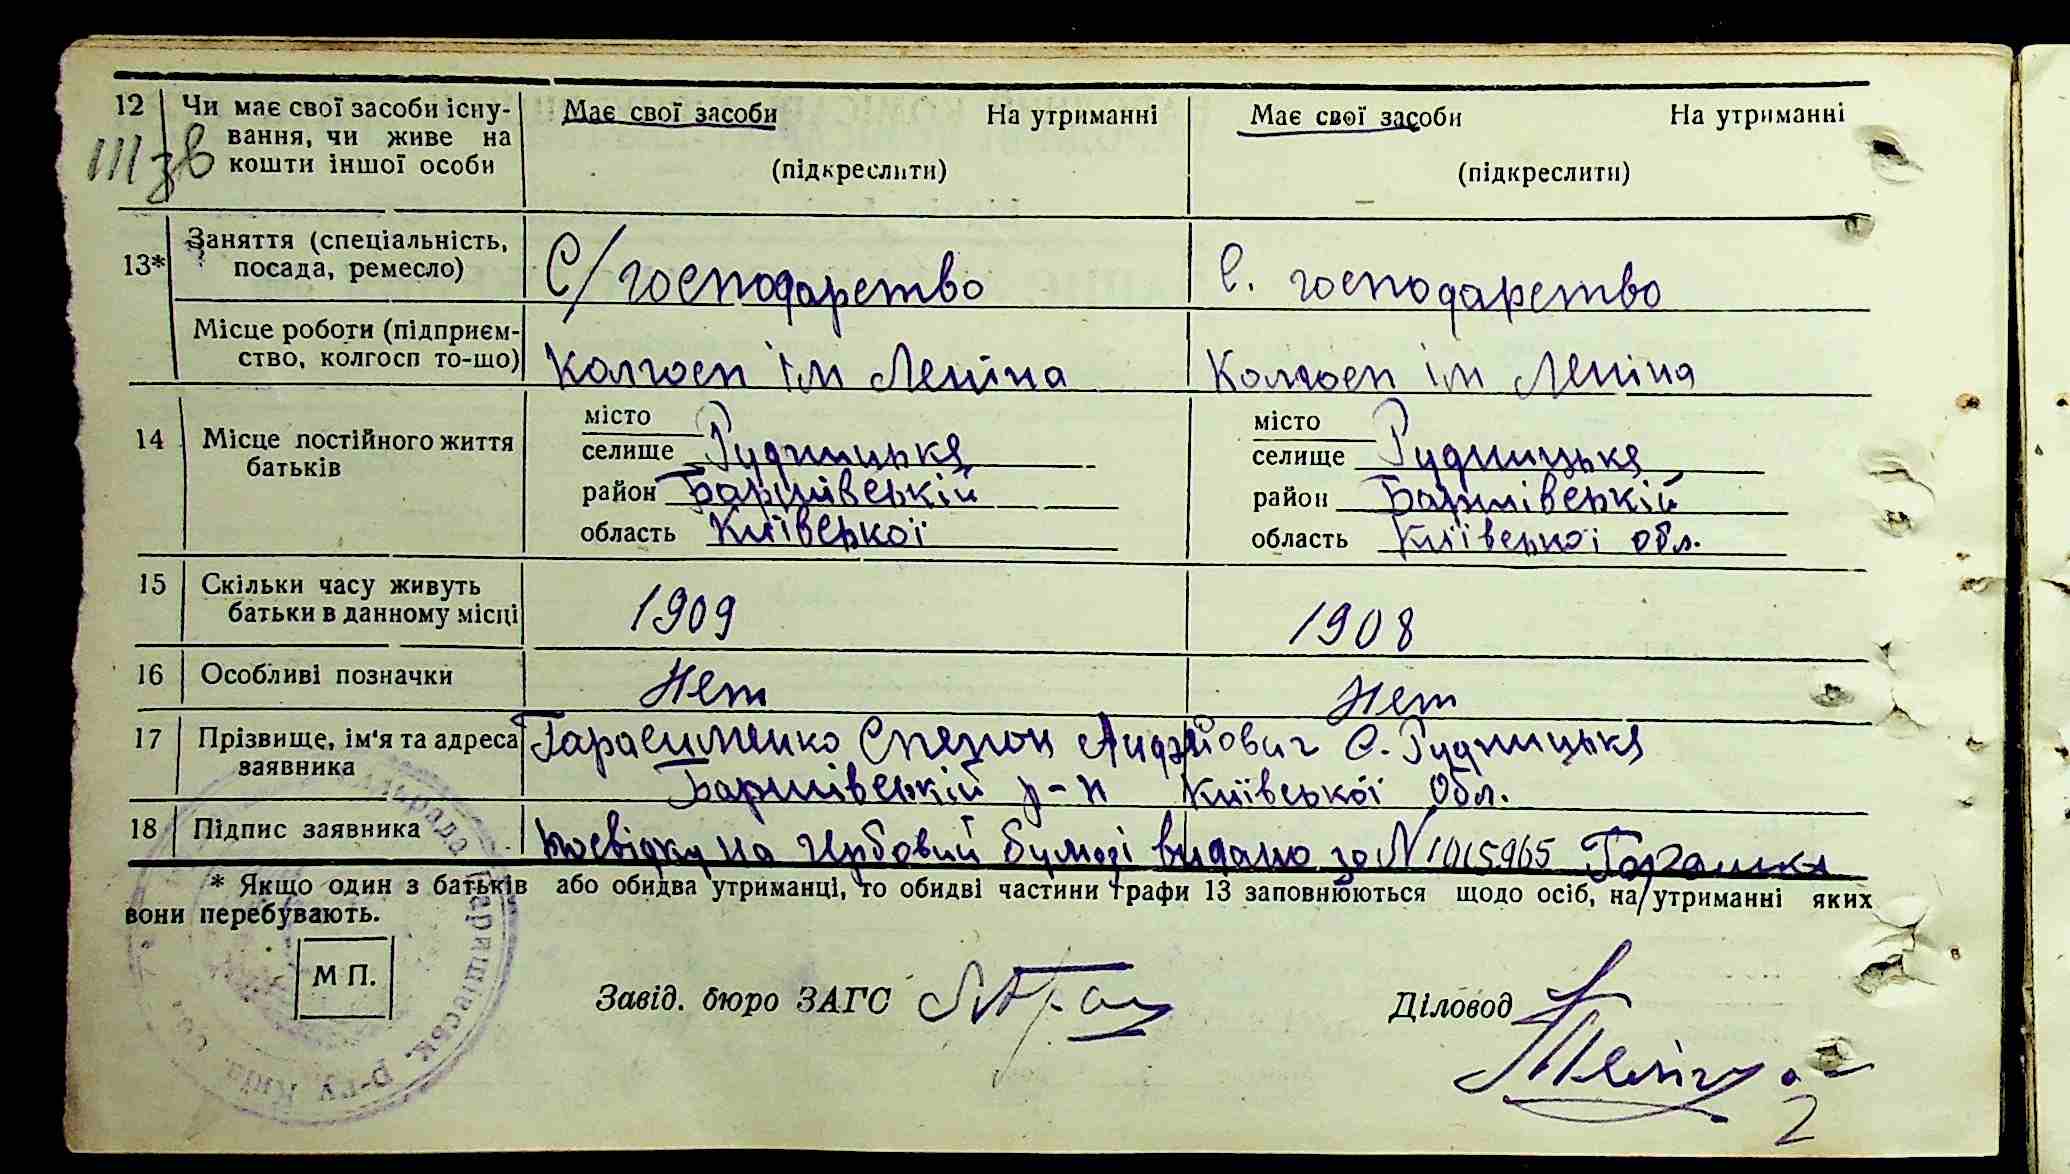 12 Чи має свої засоби існу- Має свої засоби На утриманні Має свої засоби На утриманні
вання, чи живе на
кошти іншої особи (підкреслити) (підкреслити)
13* Заняття (спеціальність, посада, ремесло) С/господарство С. господарство
Місце роботи (підприєм-
ство, колгосп то-що) Колгосп ім Леніна Колгосп ім Леніна
14 Місце постійного життя батьків місто місто
селище Рудницьке селище Рудницьке
район Баришівській район Баришівській
область Київської область Київської обл.
15 Скільки часу живуть
батьки в данному місці 1909 1908
16 Особливі позначки Нет Нет
17 Прізвище, ім'я та адреса Гарасименко Степон Андрйович С. Рудницьке
заявника Баришівській р-н Київської Обл.
18 Підпис заявника Посвідку на гербовий бумазі видано за № 1015965
* Якщо один з батьків або обидва утриманці, то обидві частини графи 13 заповнюються щодо осіб, на утриманні яких
вони перебувають.
М П.
Завід. бюро ЗАГС Діловод
2